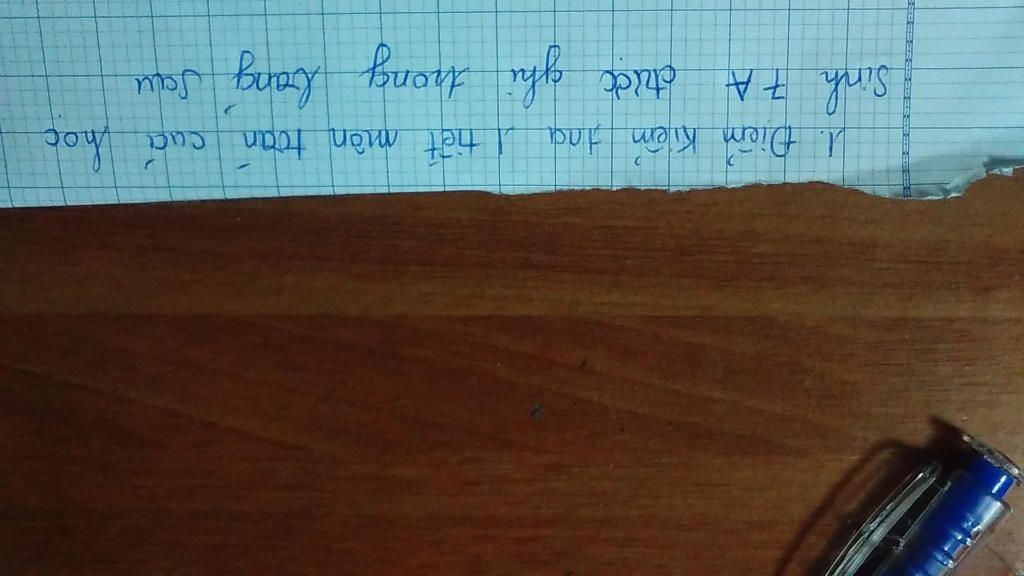 1. Điểm kiểm tra 1 tiết môn toán của học
sinh 7A được ghi trong bảng sau